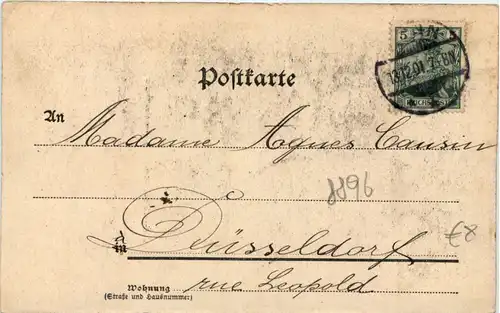 5 5
13.12.01. 7-8N.
Postkarte
An
Madame Agnes Causin
8896
in
Düsseldorf
€8
Wohnung
(Straße und Hausnummer)
rue Leopold